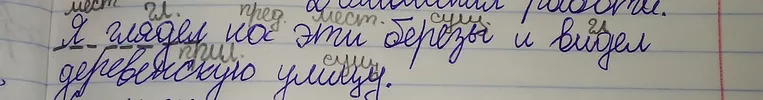 мест. гл. пред. мест. сущ. гл.
Я глядел на эти берёзы и видел
прил. сущ.
деревенскую улицу.